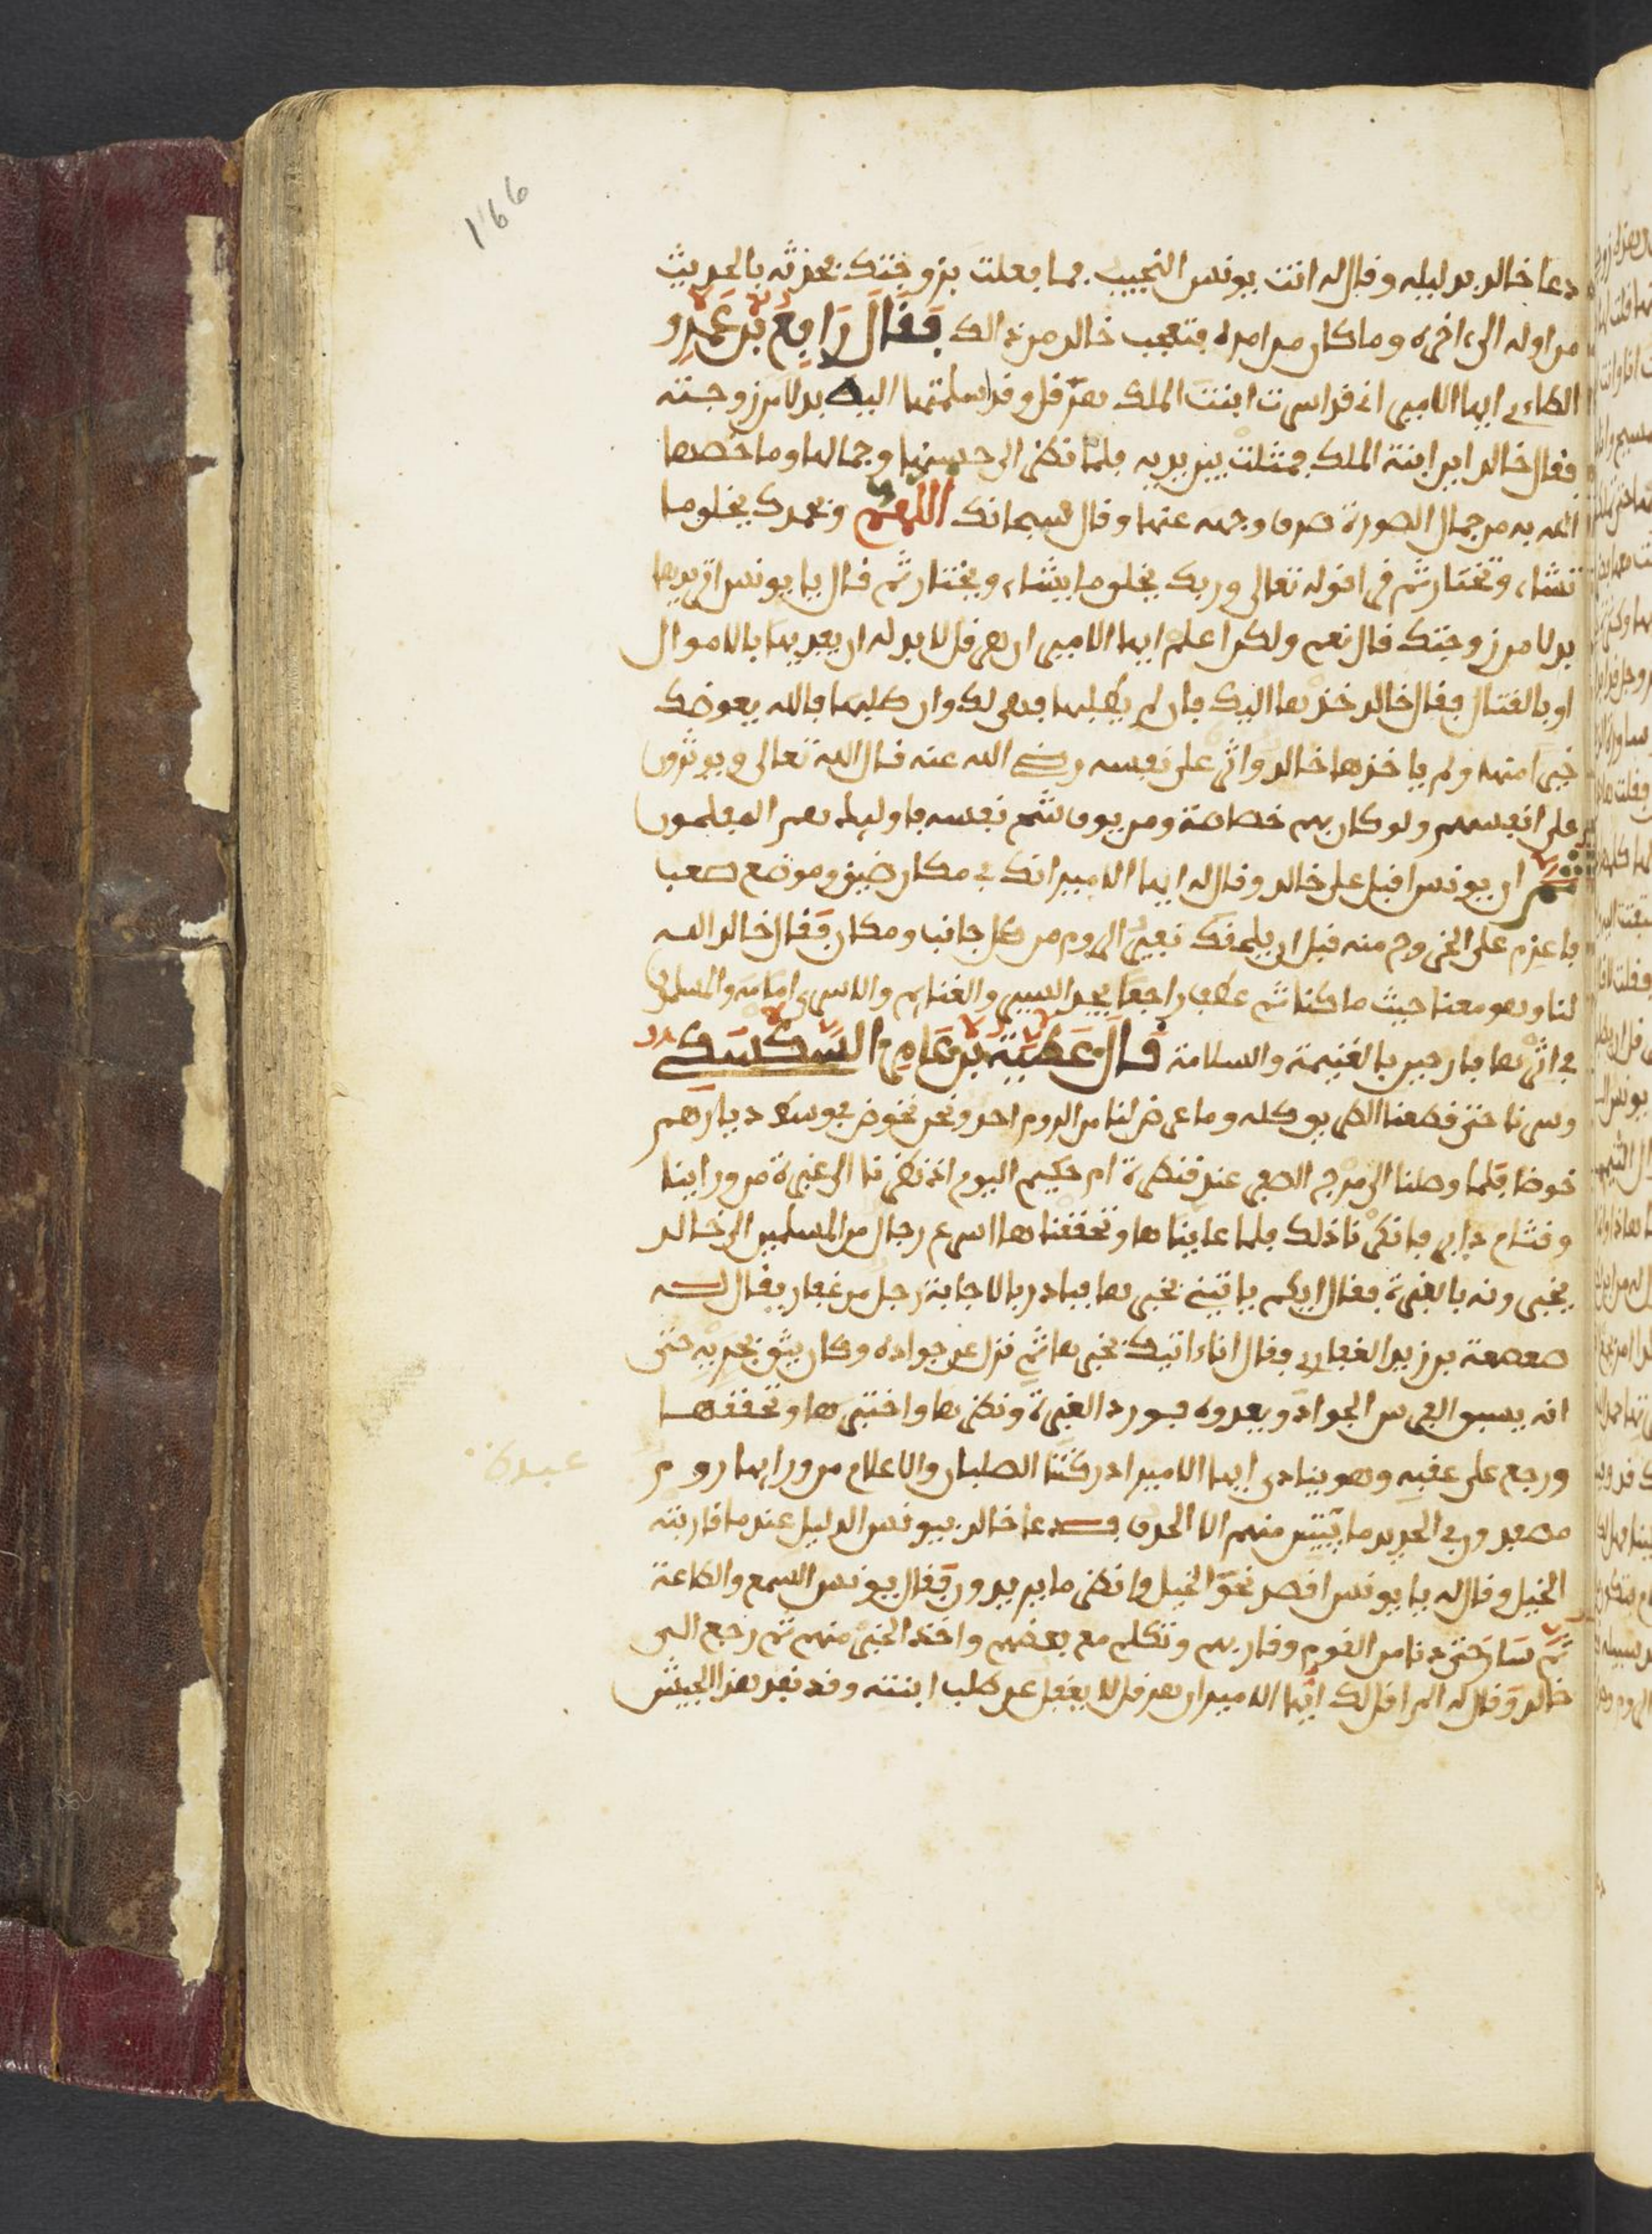 166
دعا خالد بدليله وقال له انت يونس النجيب فما فعلت بزوجتك فحدثه بالحديث
من اوله الى اخره وما كان من امره فتعجب خالد من ذالك فقال رافع بن عمرو
الطاءي ايها الامير اني قد اسرت ابنت الملك هرقل وقد اسلمتها اليه بدلا من زوجته
فقال خالد اين ابنة الملك فمثلت بين يديه فلما نظر الى حسنها وجمالها وما خصها
الله به من جمال الصورة صرف وجهه عنها وقال سبحانك اللهم وبحمدك تخلق ما
تشاء وتختار ثم قرا قوله تعالى وربك يخلق ما يشاء ويختار ثم قال يا يونس اتريدها
بدلا من زوجتك قال نعم ولكن اعلم ايها الامير ان هرقل لا بد له ان يفديها بالاموال
او بالقتال فقال خالد خذها اليك فان لم يطلبها فهي لك وان طلبها فالله يعوضك
خيرا منها ولم ياخذها خالد واثر على نفسه رضي الله عنه قال الله تعالى ويوثرون
على انفسهم ولو كان بهم خصاصة ومن يوق شح نفسه فاوليك هم المفلحون
ثم ان يونس اقبل على خالد وقال له ايها الامير انك في مكان ضيق وموضع صعب
فاعزم على الخروج منه قبل ان يلحقك نفير الروم من كل جانب ومكان فقال خالد الله
لنا وهو معنا حيث ما كنا ثم عطف راجعا يجد السير والغنايم والاسرى امامه والمسلمون
في اثرها فارحين بالغنيمة والسلامة قال عطية بن عامر السكسكي
وسرنا حتى قطعنا الطريق كله وما عرض لنا من الروم احد ونحن نخوض في وسط ديارهم
خوضا فلما وصلنا الى مرج الصفر عند قنطرة ام حكيم اليوم اذ نظرنا الى غبرة من وراينا
وقتام داير فانكرنا ذلك فلما عايناها وتحققناها اسرع رجال من المسلمين الى خالد
يخبرونه بالغبرة فقال ايكم ياتيني بخبرها فبادر بالاجابة رجل من غفار يقال له
صعصعة بن زيد الغفاري فقال اناءاتيك بخبرها ثم نزل عن جواده وكان يثق بجريه حتى
انه يسبق الفرس الجواد ويعدوه فورد الغبرة ونظرها واختبرها وتحققها
ورجع على عقبه وهو ينادي ايها الامير ادركتنا الصلبان والاعلام من ورايها روم
مصفدون في الحديد ما يبين منهم الا الحدق فدعا خالد بيونس الدليل عندما قاربته
الخيل وقال له يا يونس اقصد نحو الخيل وانظر ما يريدون فقال يونس السمع والطاعة
ثم سار حتى دنا من القوم وقاربهم وتكلم مع بعضهم واخذ الخبر منهم ثم رجع الى
خالد وقال له الم اقل لك ايها الامير ان هرقل لا يغفل عن طلب ابنته وقد نفذ هذا الجيش